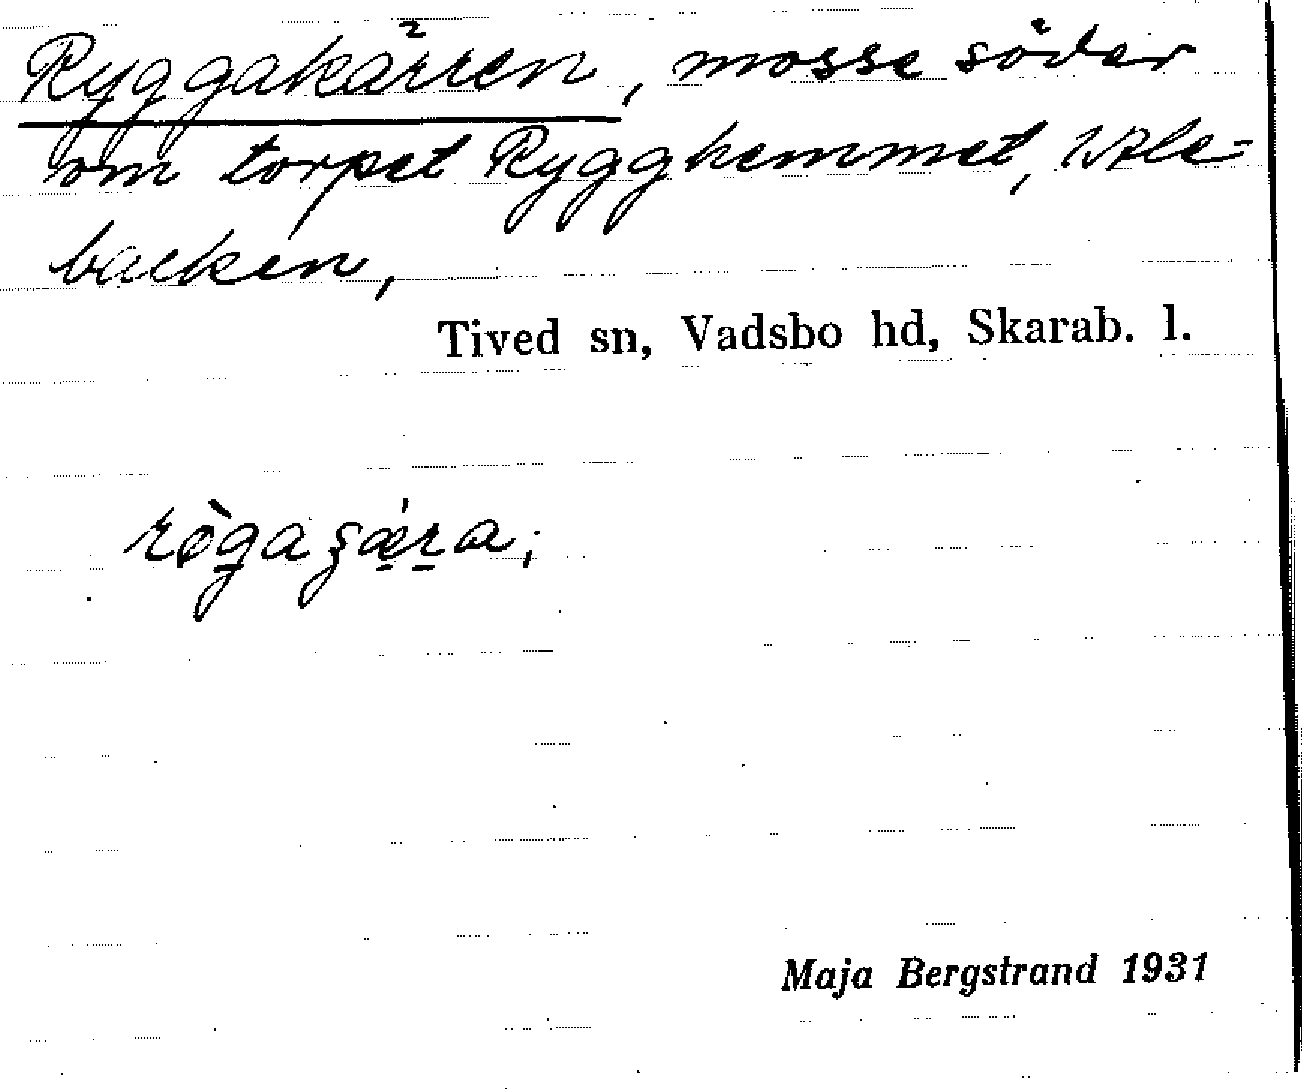 Ryggakärren, mosse söder
om torpet Rygghemmet,
backen,
Tived sn, Vadsbo hd, Skarab. l.
Maja Bergstrand 1931